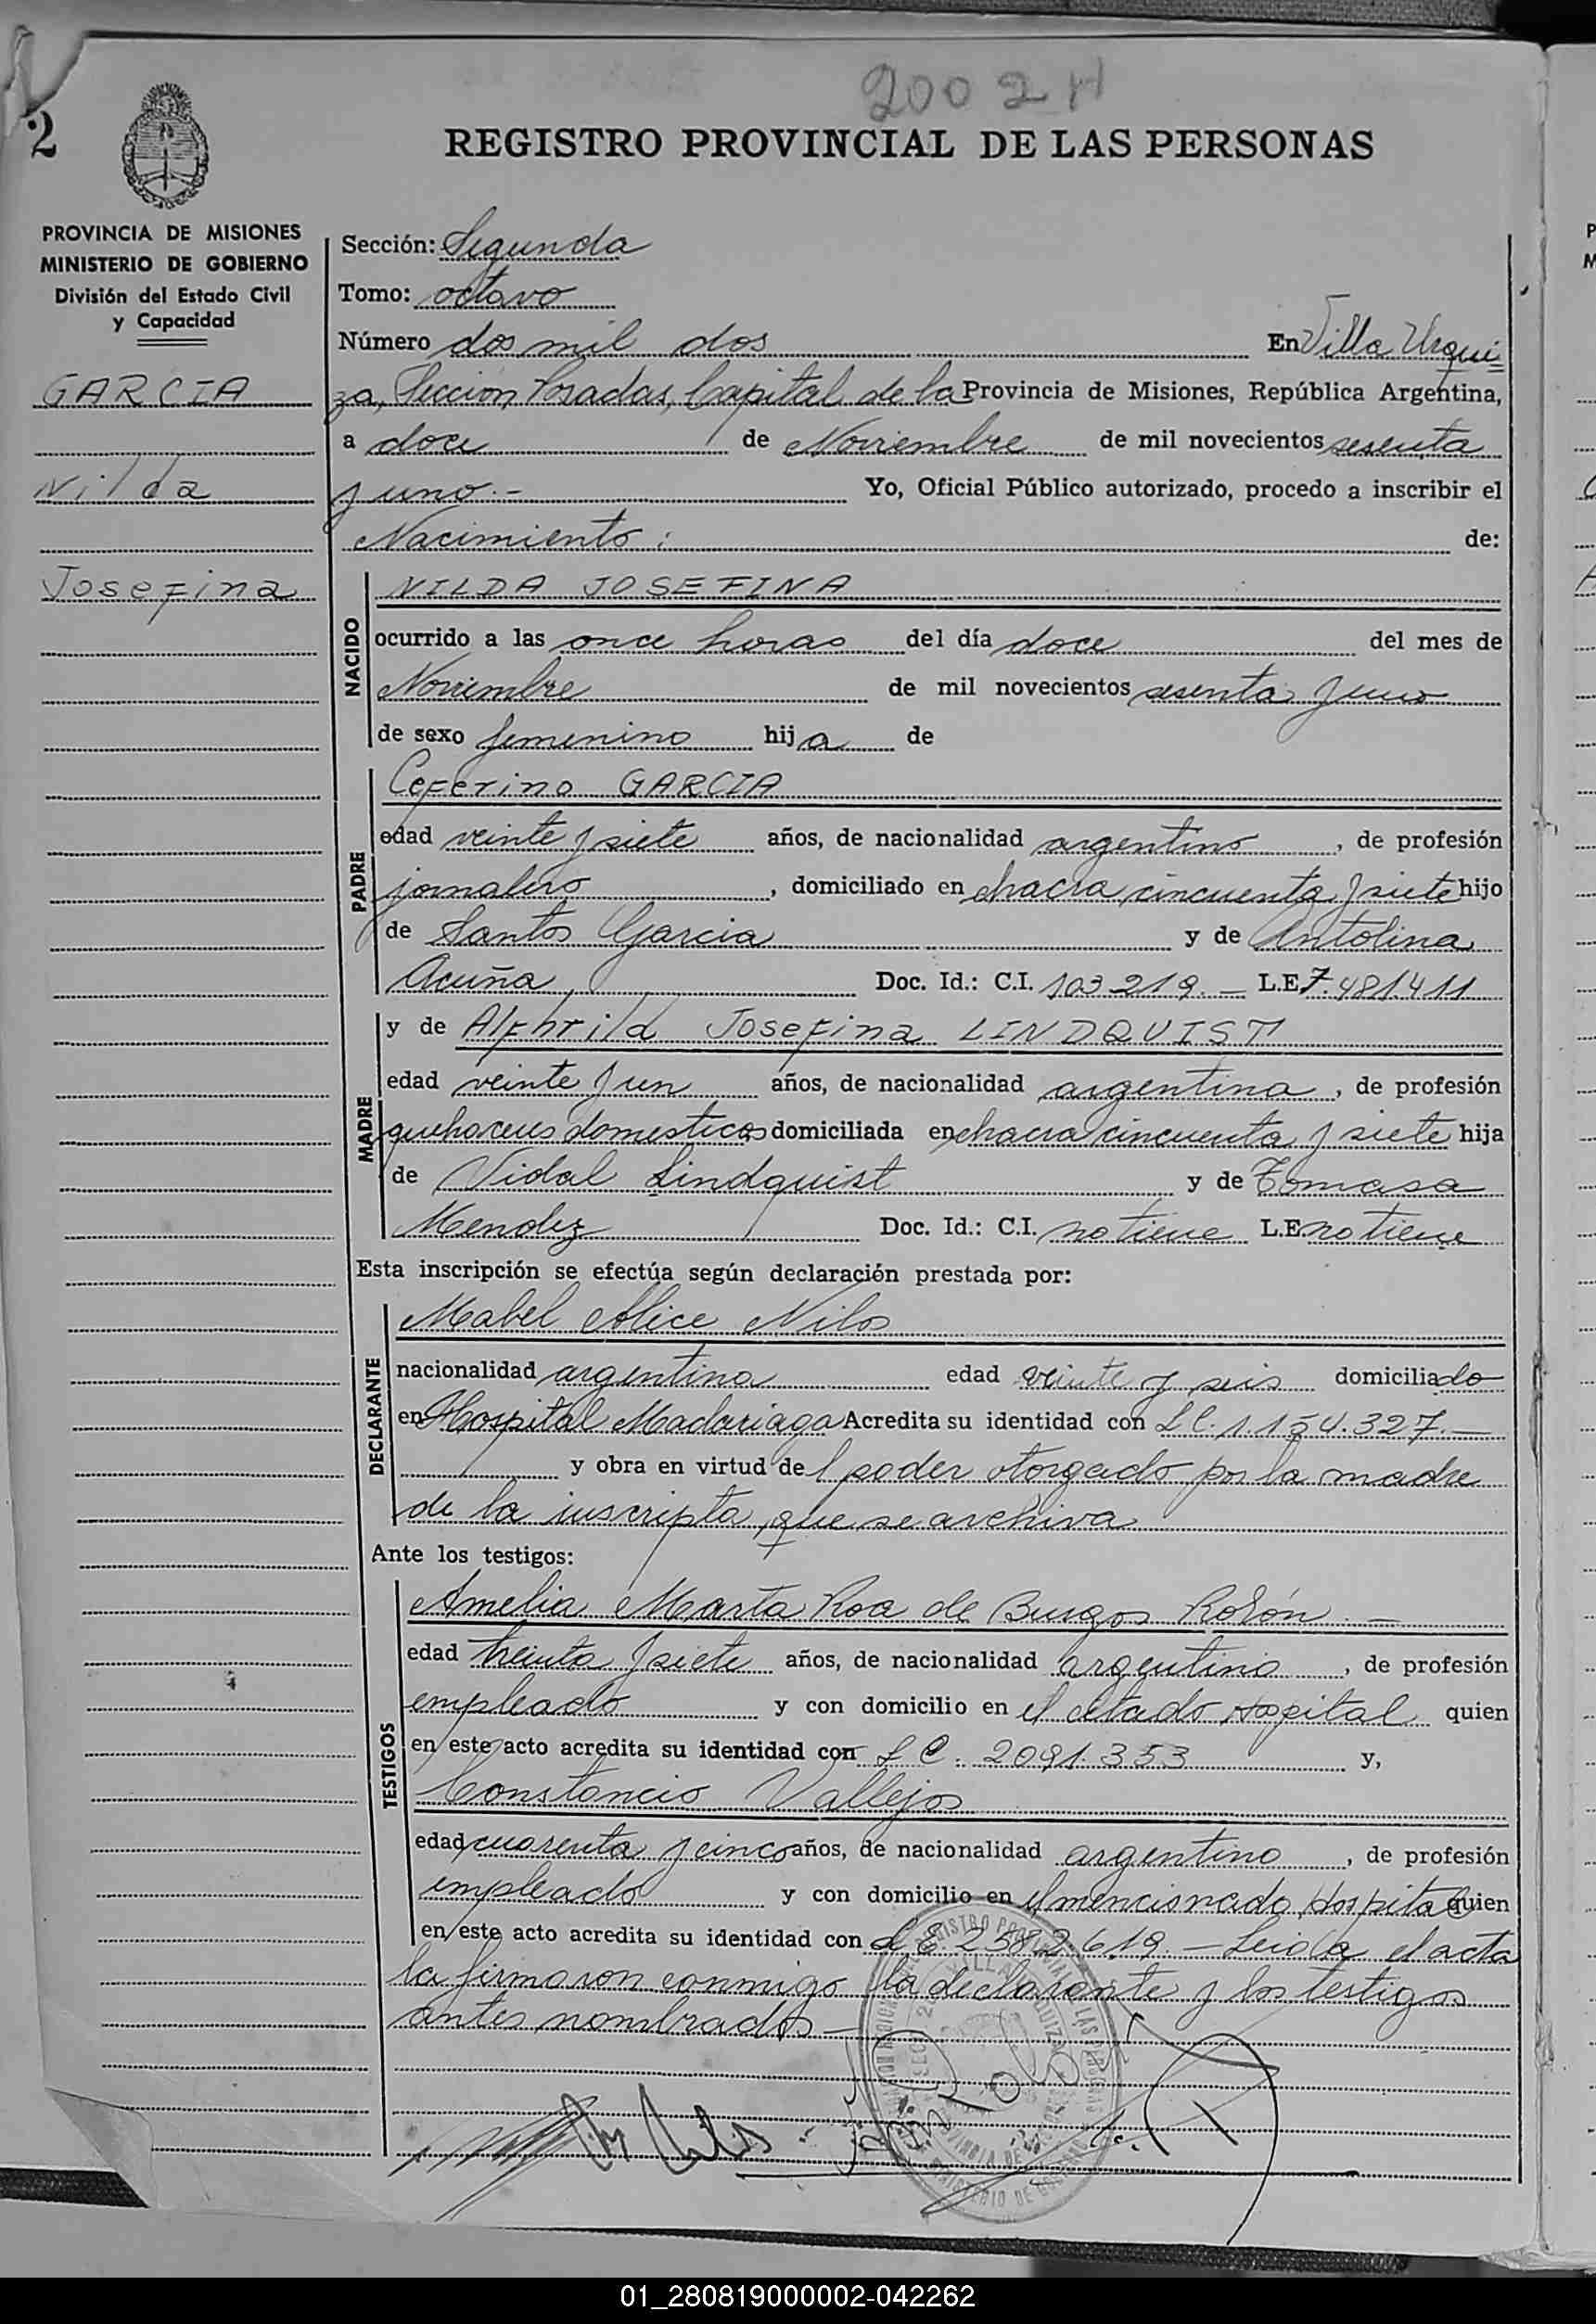 2002 H
2
REGISTRO PROVINCIAL DE LAS PERSONAS
PROVINCIA DE MISIONES
MINISTERIO DE GOBIERNO
División del Estado Civil
y Capacidad
GARCIA
Nilda
Josefina
Sección: Segunda
Tomo: octavo
Número dos mil dos En Villa Urqui
za, Sección Posadas, Capital de la Provincia de Misiones, República Argentina,
a doce de Noviembre de mil novecientos sesenta
y uno.- Yo, Oficial Público autorizado, procedo a inscribir el
Nacimiento: de:
NACIDO
NILDA JOSEFINA
ocurrido a las once horas del día doce del mes de
Noviembre de mil novecientos sesenta y uno
de sexo femenino hija de
PADRE
Ceferino GARCIA
edad veinte y siete años, de nacionalidad argentino, de profesión
jornalero, domiciliado en chacra cincuenta y siete hijo
de Santos Garcia y de Antolina
Acuña Doc. Id.: C.I. 103219.- L.E. 7.481.411
MADRE
y de Alfhrild Josefina LINDQUIST
edad veinte y un años, de nacionalidad argentina, de profesión
quehaceres domesticos domiciliada en chacra cincuenta y siete hija
de Vidal Lindquist y de Tomasa
Mendez Doc. Id.: C.I. no tiene L.E. no tiene
Esta inscripción se efectúa según declaración prestada por:
DECLARANTE
Mabel Alice Nilos
nacionalidad argentina edad veinte y seis domiciliado
en Hospital Madariaga Acredita su identidad con L.C. 1.154.327.-
y obra en virtud del poder otorgado por la madre
de la inscripta, que se archiva
Ante los testigos:
TESTIGOS
Amelia Marta Roa de Burgos Rolón.-
edad treinta y siete años, de nacionalidad argentino, de profesión
empleado y con domicilio en el citado Hospital quien
en este acto acredita su identidad con L C. 2091.353 y,
Constancio Vallejos
edad cuarenta y cinco años, de nacionalidad argentino, de profesión
empleado y con domicilio en el mencionado Hospital quien
en este acto acredita su identidad con L.E. 2582619.- Leida el acta
la firmaron conmigo la declarante y los testigos
antes nombrados.-
01_280819000002-042262